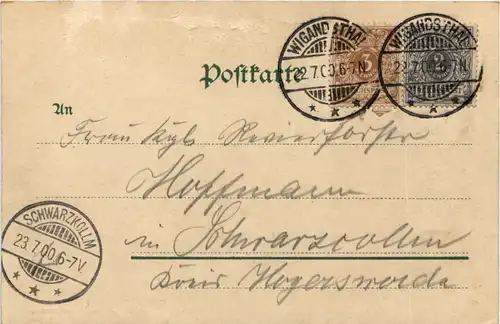 WIGANDSTHAL
22.7.00.6-7N.
WIGANDSTHAL
22.7.00.6-7N.
3
2
Postkarte
An
Frau Kgl. Revierförster
Hoffmann
in Schwarzcollm
Kreis Hoyerswerda
SCHWARZKOLLM
23.7.00.6-7V.